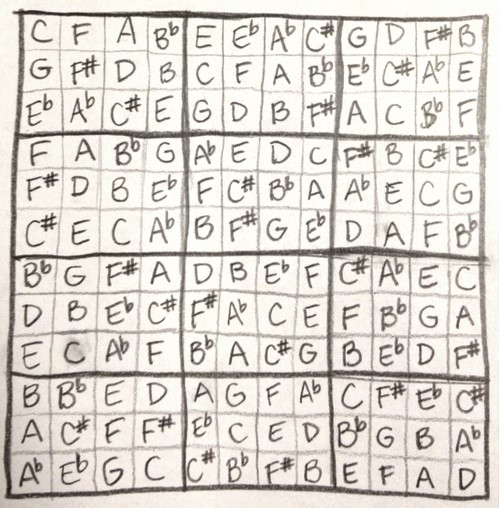 C F A B♭ E E♭ A♭ C# G D F# B
G F# D B C F A B♭ E♭ C# A♭ E
E♭ A♭ C# E G D B F# A C B♭ F
F A B♭ G A♭ E D C F# B C# E♭
F# D B E♭ F C# B♭ A A♭ E C G
C# E C A♭ B F# G E♭ D A F B♭
B♭ G F# A D B E♭ F C# A♭ E C
D B E♭ C# F# A♭ C E F B♭ G A
E C A♭ F B♭ A C# G B E♭ D F#
B B♭ E D A G F A♭ C F# E♭ C#
A C# F F# E♭ C E D B♭ G B A♭
A♭ E♭ G C C# B♭ F# B E F A D